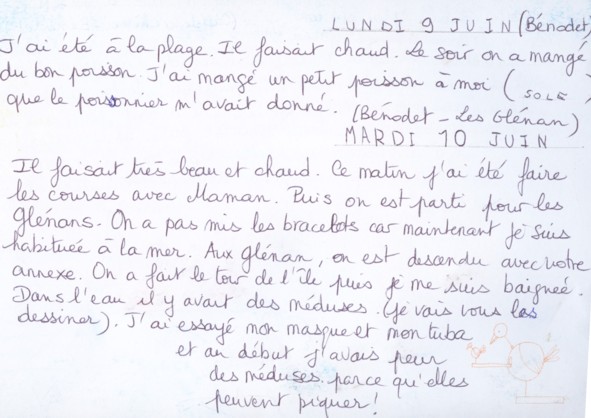 LUNDI 9 JUIN (Bénodet)
J'ai été à la plage. Il faisait chaud. Le soir on a mangé
du bon poisson. J'ai mangé un petit poisson à moi ( SOLE )
que le poissonnier m'avait donné. (Bénodet - Les Glénan)
MARDI 10 JUIN
Il faisait très beau et chaud. Ce matin j'ai été faire
les courses avec Maman. Puis on est parti pour les
Glénans. On a pas mis les bracelets car maintenant je suis
habituée à la mer. Aux Glénan, on est descendu avec votre
annexe. On a fait le tour de l'île puis je me suis baigneé.
Dans l'eau il y avait des méduses. (je vais vous les
dessiner). J'ai essayé mon masque et mon tuba
et au début j'avais peur
des méduses parce qu'elles
peuvent piquer!